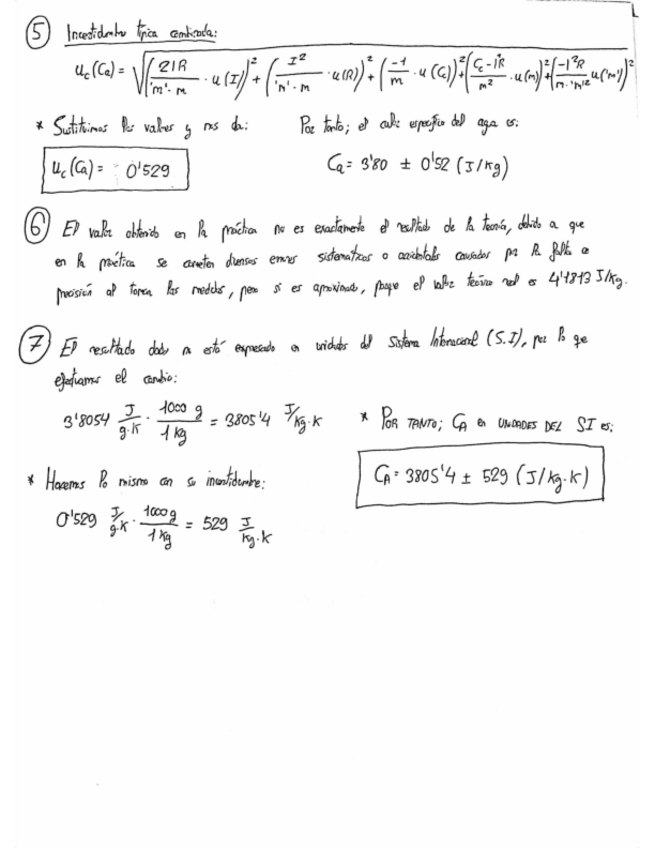 5 Incertidumbre típica combinada:
u_c(Ca) = √((2IR / 'm'·m · u(I))² + (I² / 'm'·m · u(R))² + (-1/m · u(Cc))² + (Cc-iR / m² · u(m))² + (-I²R / m·'m'² u('m'))²)
* Sustituimos los valores y nos da: Por tanto; el calor específico del agua es:
u_c(Ca) = 0'529 Ca = 3'80 ± 0'52 (J/Kg)
6 El valor obtenido en la práctica no es exactamente el resultado de la teoría, debido a que
en la práctica se cometen diversos errores sistematicos o accidentales causados por la falta de
precisión al tomar las medidas, pero si es aproximado, porque el valor teórico real es 4'1813 J/Kg.
7 El resultado dado no está expresado en unidades del Sistema Internacional (S.I), por lo que
efectuamos el cambio:
3'8054 J/g·K · 1000 g/1 Kg = 3805'4 J/Kg·K * POR TANTO; CA en UNIDADES DEL SI es:
* Hacemos lo mismo con su incertidumbre: CA = 3805'4 ± 529 (J/Kg·K)
0'529 J/g·K · 1000g/1 Kg = 529 J/Kg·K